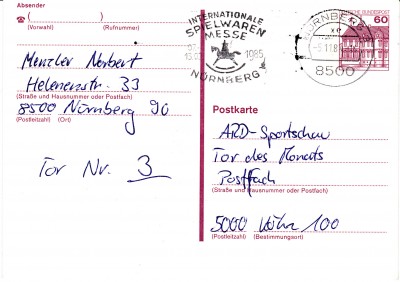 Absender
☎ ( ) 
(Vorwahl) (Rufnummer)
Menzler Norbert
Helenenstr. 33
(Straße und Hausnummer oder Postfach)
8500 Nürnberg 90
(Postleitzahl) (Ort)
Tor Nr. 3
INTERNATIONALE
SPIELWAREN
MESSE
1985
NÜRNBERG
NÜRNBERG
8500
DEUTSCHE BUNDESPOST
60
Postkarte
ARD-Sportschau
Tor des Monats
Postfach
(Straße und Hausnummer oder Postfach)
5000 Köln 100
(Postleitzahl) (Bestimmungsort)